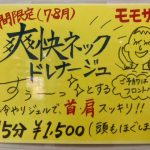 間限定(7・8月)
モモサ
爽快ネック
ドレナージュ
すぅーっ とする
ご予約は
フロント
冷やりジェルで、首肩スッキリ!!
15分 ¥1,500 (頭もほぐしま